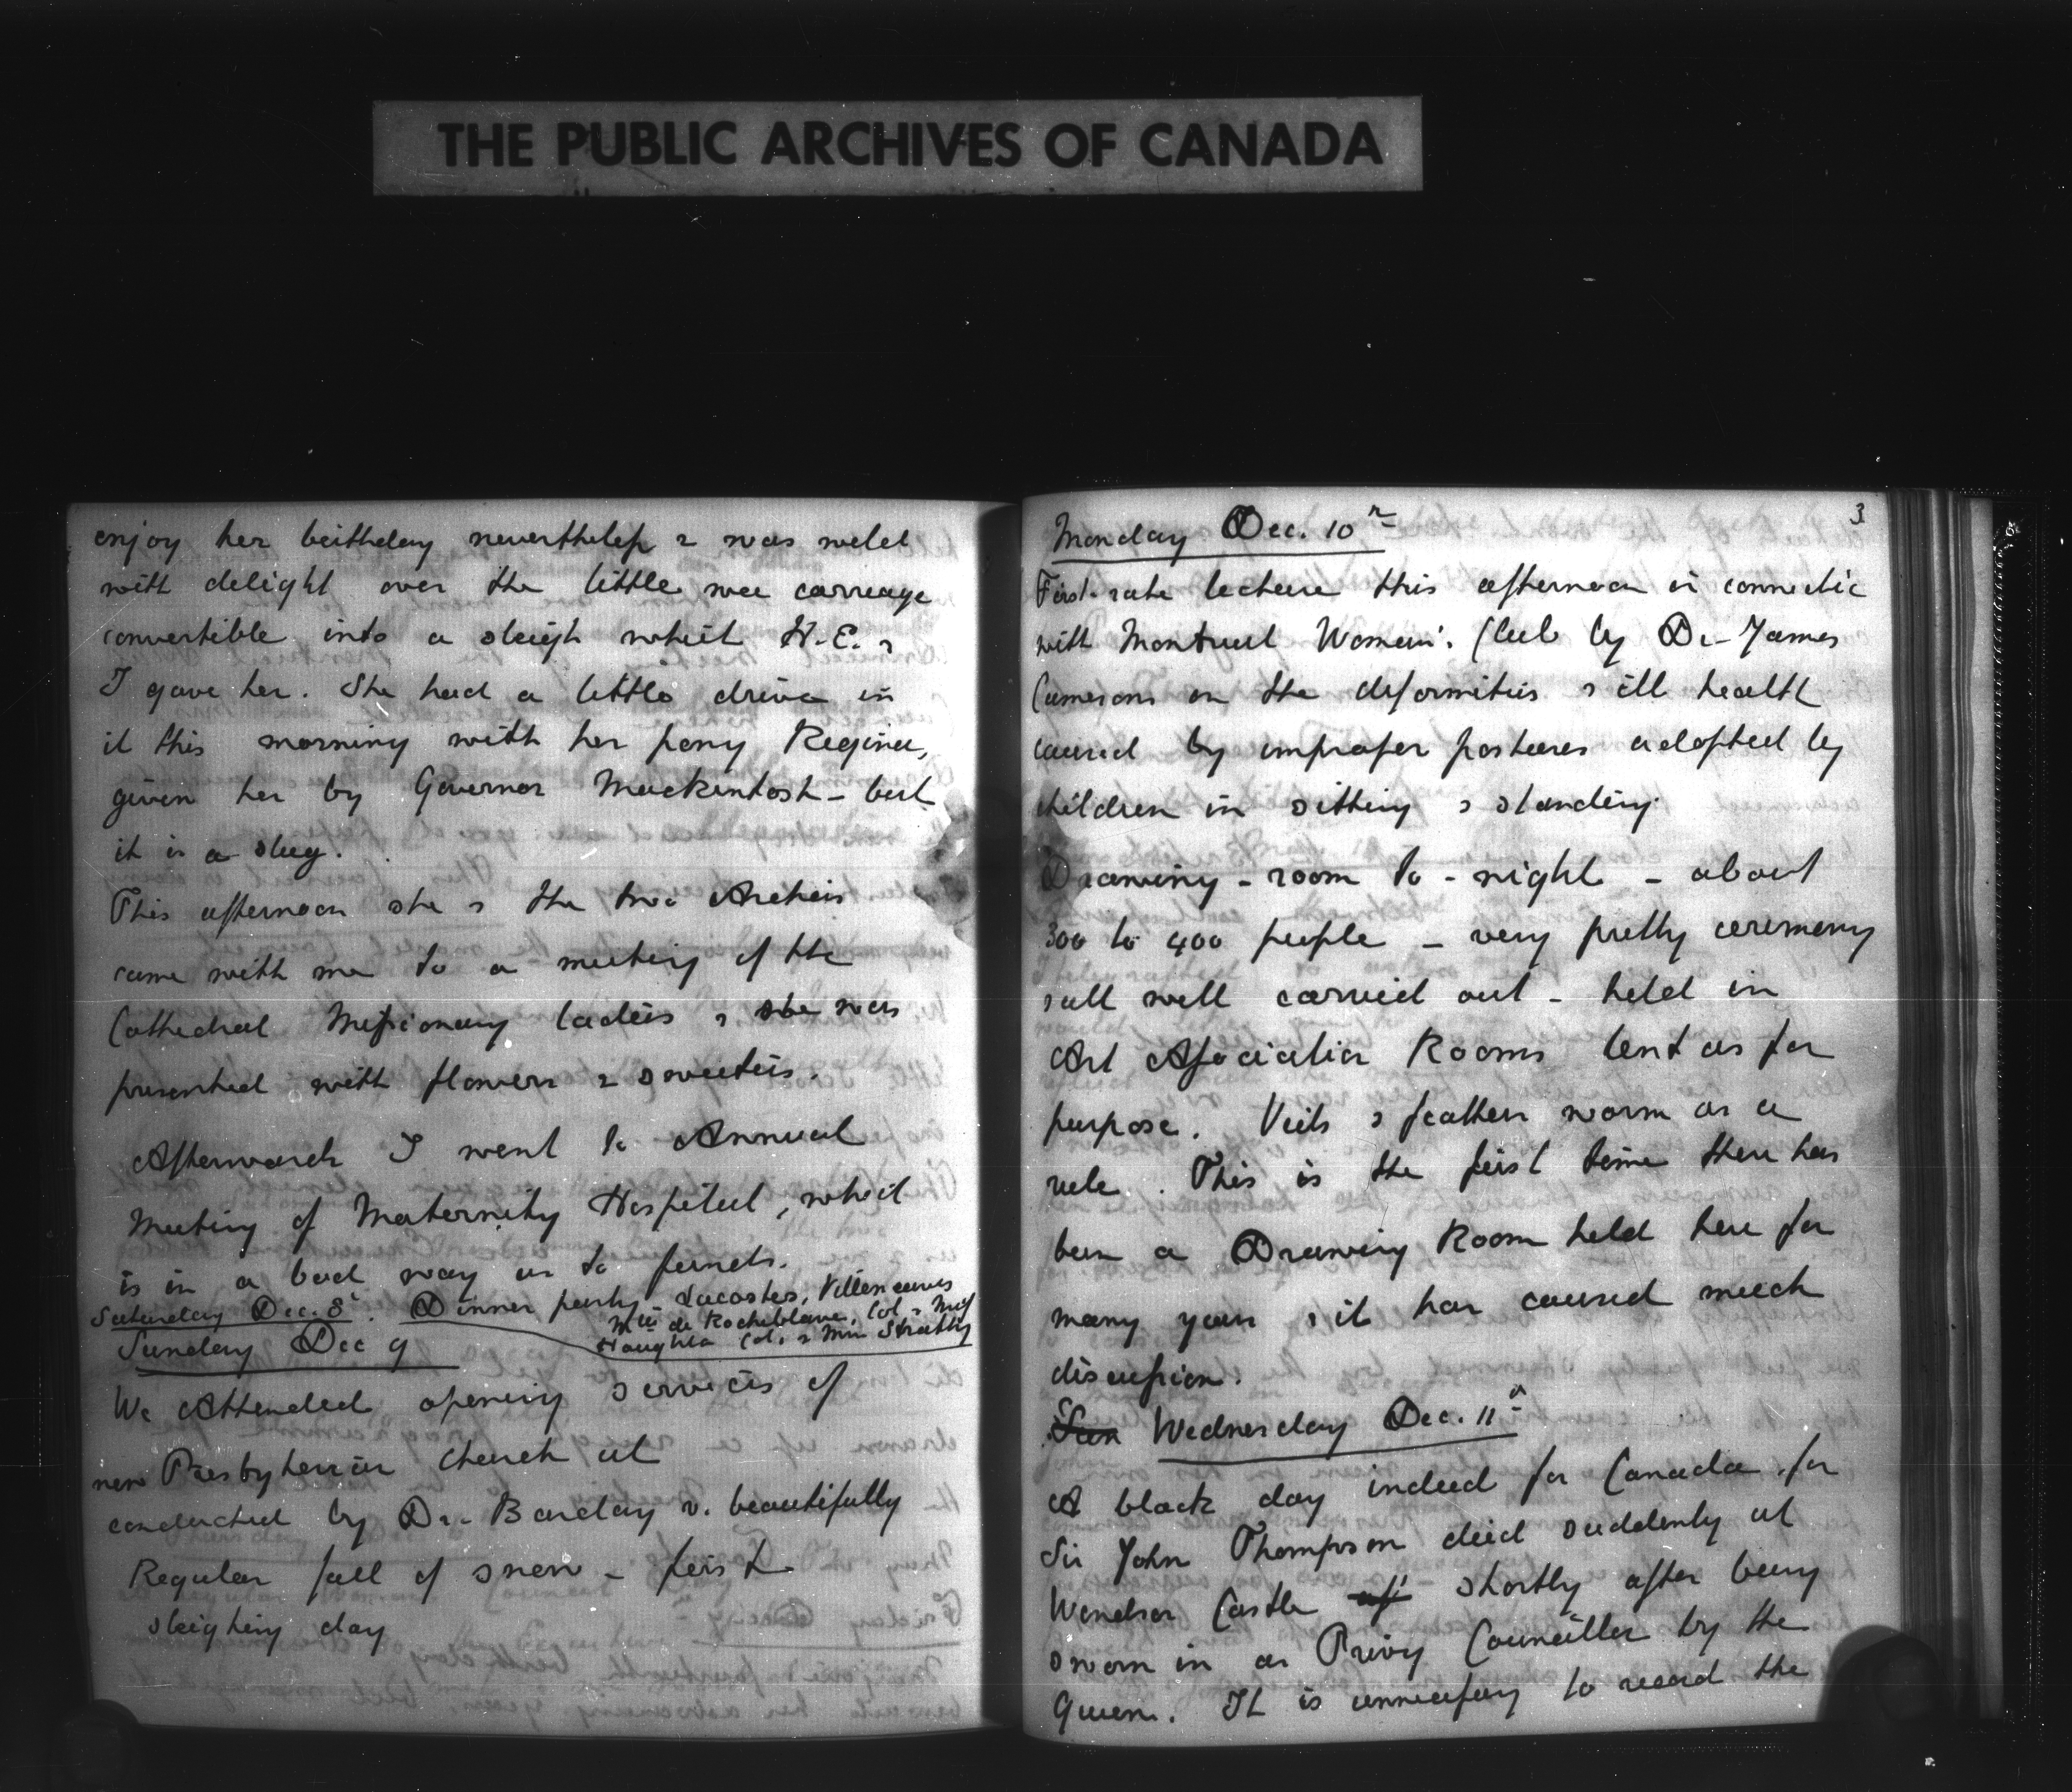 THE PUBLIC ARCHIVES OF CANADA
enjoy her birthday nevertheless & was wild
with delight over the little wee carriage
convertible into a sleigh which H.E. &
I gave her. She had a little drive in
it this morning with her pony Regina,
given her by Governor Mackintosh - but
it is a slug.
This afternoon she & the two Archies
came with me to a meeting of the
Cathedral Missionary ladies & she was
presented with flowers & sweeties.
Afterwards I went to Annual
Meeting of Maternity Hospital, which
is in a bad way as to funds.
Saturday Dec. 8th. Dinner party - Lacostes, Villeneuves
Mlle de Rocheblave, Col. & Miss
Houghton Col. & Mrs Strathy
Sunday Dec 9
We Attended opening services of
new Presbyterian Church at
conducted by Dr. Barclay v. beautifully
Regular fall of snow - first
sleighing day
3
Monday Dec. 10th
First-rate lecture this afternoon in connectio
with Montreal Women's Club by Dr. James
Camerons on the deformities & ill health
caused by improper postures adopted by
children in sitting & standing.
Drawing-room to-night - about
300 to 400 people - very pretty ceremony
& all well carried out - held in
Art Association Rooms lent us for
purpose. Veils & feathers worn as a
rule. This is the first time there has
been a Drawing Room held here for
many years & it has caused much
discussion.
Sun Wednesday Dec. 11th
A black day indeed for Canada for
Sir John Thompson died suddenly at
Windsor Castle aft shortly after being
sworn in as Privy Councillor by the
Queen. It is unnecessary to record the